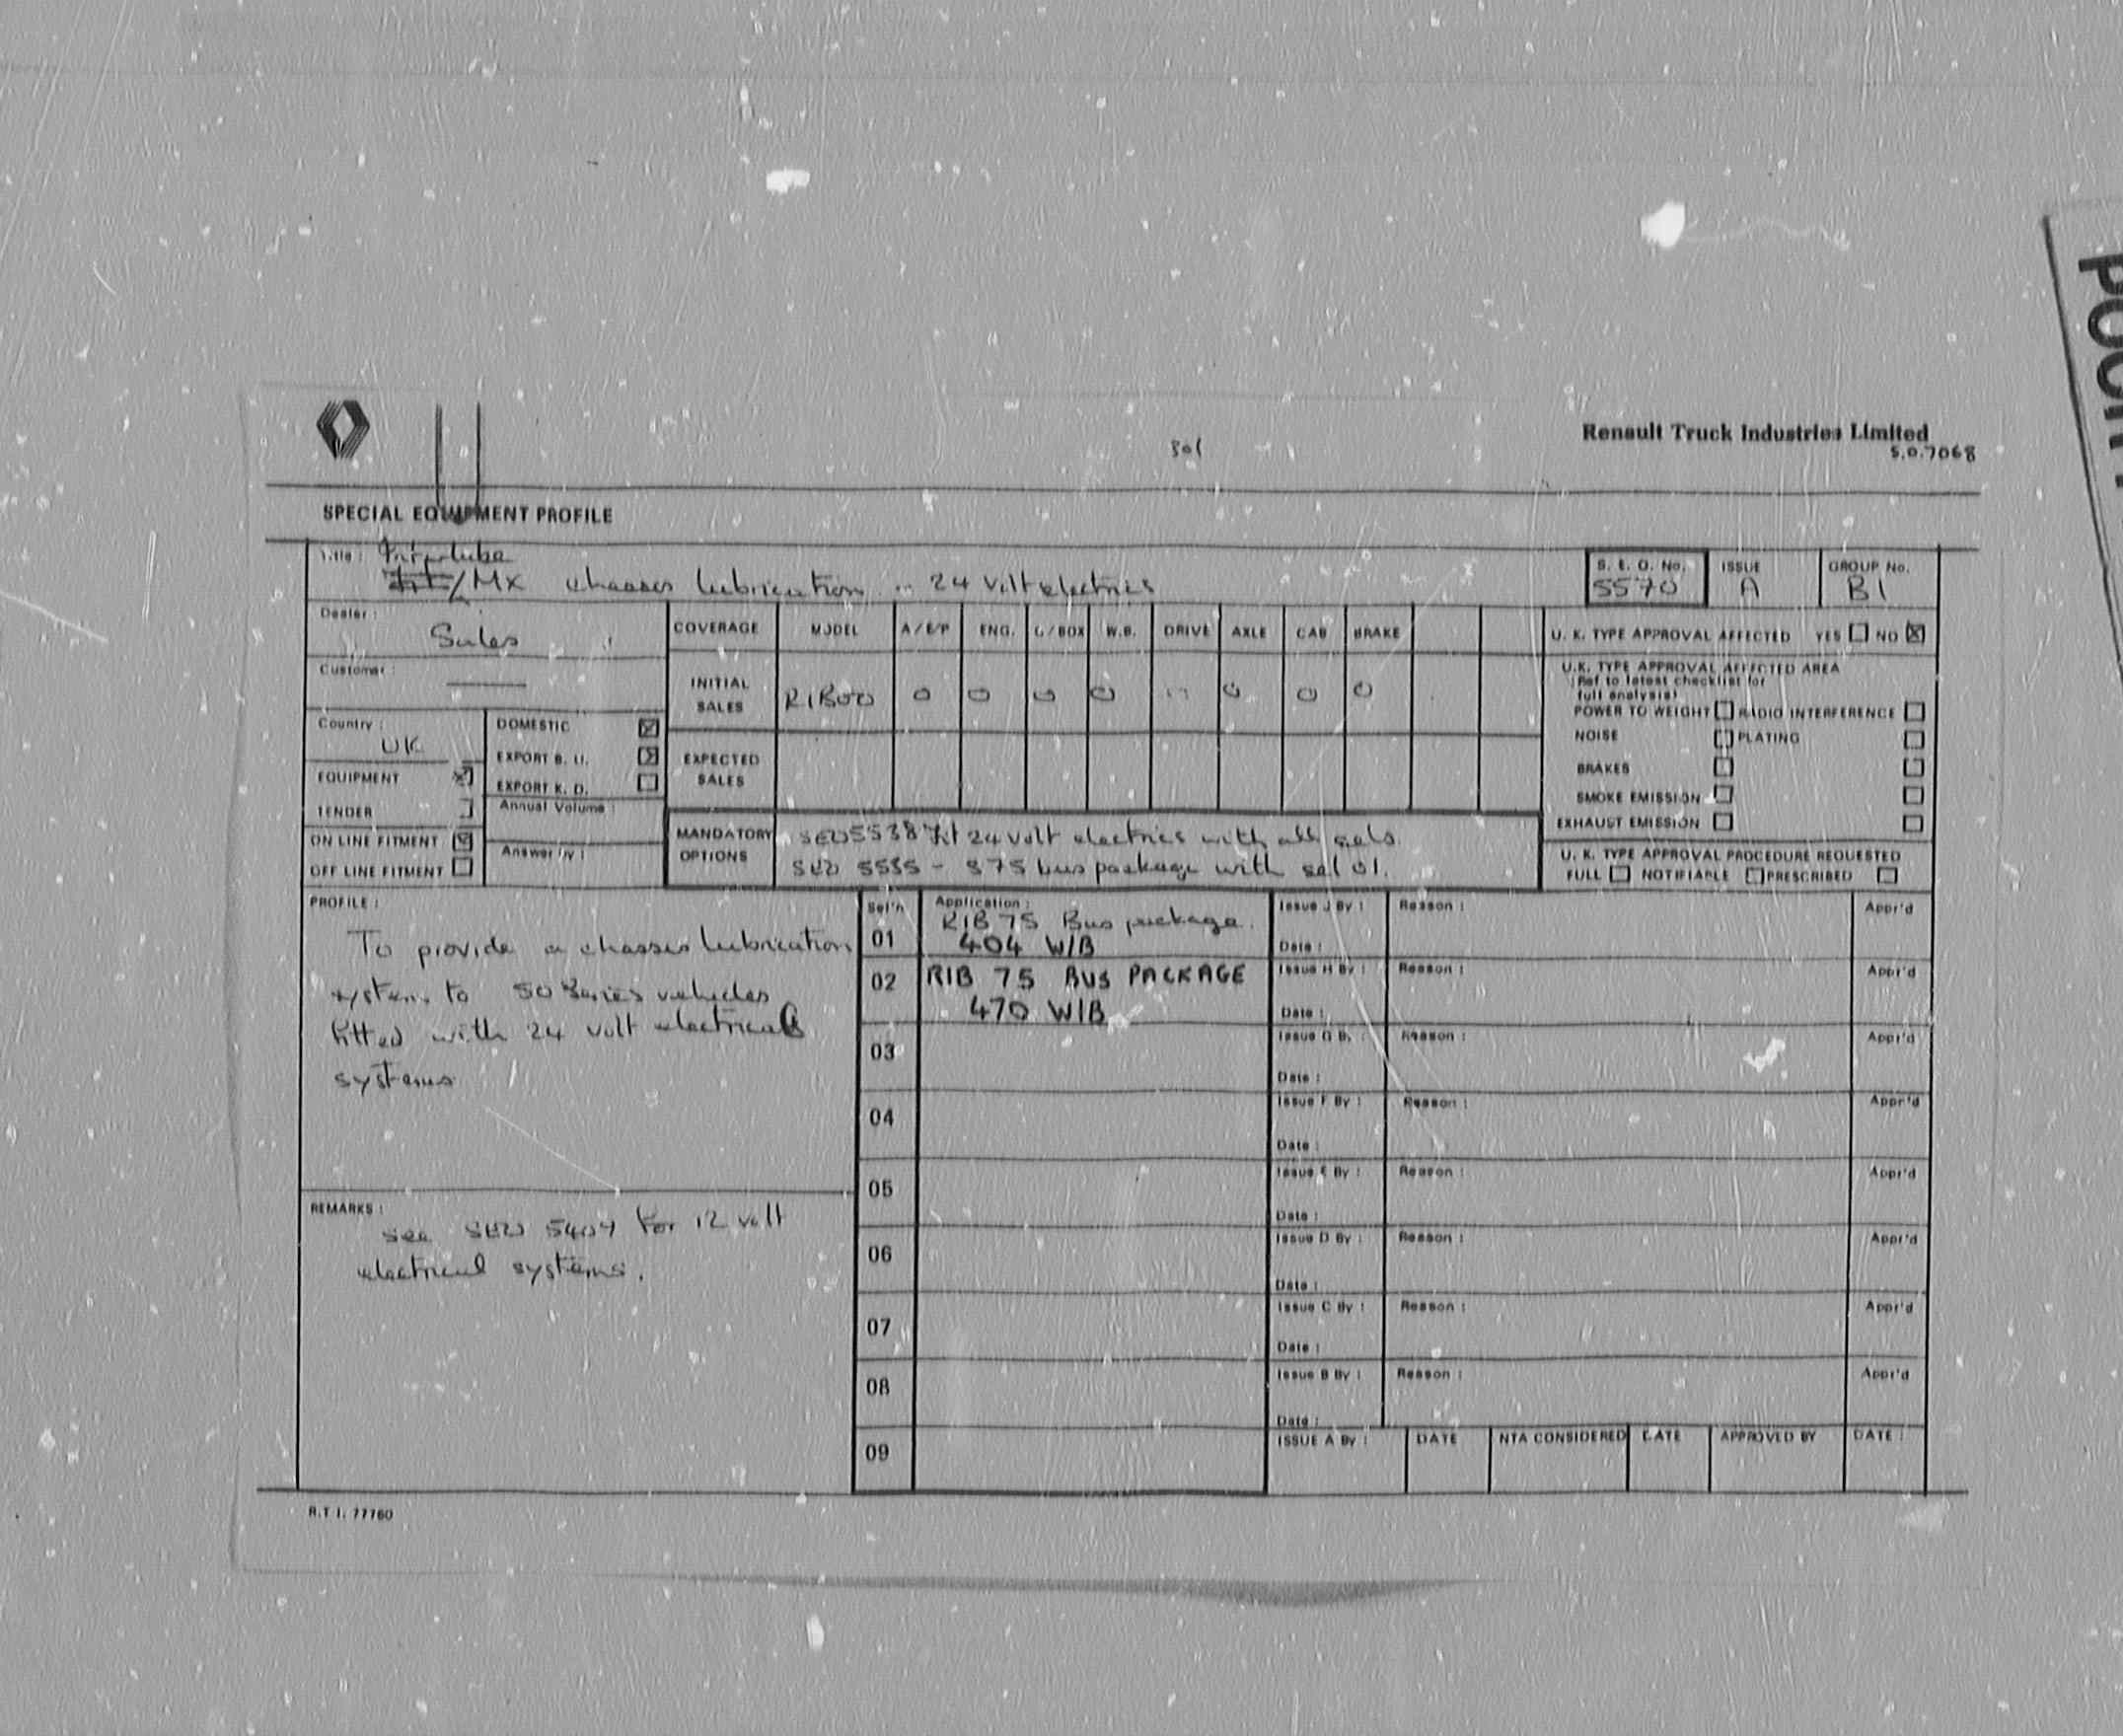 301
Renault Truck Industries Limited
S.O.7068
SPECIAL EQUIPMENT PROFILE
Title: Interlube
/MX chassis lubrication .. 24 Volt electrics
S. E. O. No.
5570
ISSUE
A
GROUP No.
B1
Dealer:
Sales
Customer:
Country:
UK
EQUIPMENT
TENDER
ON LINE FITMENT
OFF LINE FITMENT
DOMESTIC
EXPORT B. U.
EXPORT K. D.
Annual Volume:
Answer by:
COVERAGE MODEL A/E/P ENG. G/BOX W.B. DRIVE AXLE CAB BRAKE
INITIAL SALES R1B00 0 0 0 0 0 0 0
EXPECTED SALES
MANDATORY OPTIONS
SEO 5538 Fit 24 volt electrics with all sels.
SEO 5535 - S75 bus package with sel 01.
U. K. TYPE APPROVAL AFFECTED YES NO
U.K. TYPE APPROVAL AFFECTED AREA
(Ref to latest checklist for
full analysis)
POWER TO WEIGHT RADIO INTERFERENCE
NOISE PLATING
BRAKES
SMOKE EMISSION
EXHAUST EMISSION
U. K. TYPE APPROVAL PROCEDURE REQUESTED
FULL NOTIFIABLE PRESCRIBED
PROFILE:
To provide a chassis lubrication
system to 50 Series vehicles
fitted with 24 volt electrical
systems
REMARKS:
see SEO 5407 for 12 volt
electrical systems.
Sel'n Application:
01 R1B 75 Bus package.
404 W/B
02 R1B 75 BUS PACKAGE
470 W/B
03
04
05
06
07
08
09
Issue J By: Reason: Appr'd
Date:
Issue H By: Reason: Appr'd
Date:
Issue G By: Reason: Appr'd
Date:
Issue F By: Reason: Appr'd
Date:
Issue E By: Reason: Appr'd
Date:
Issue D By: Reason: Appr'd
Date:
Issue C By: Reason: Appr'd
Date:
Issue B By: Reason: Appr'd
Date:
ISSUE A By: DATE NTA CONSIDERED DATE APPROVED BY DATE:
R.T.I. 77760